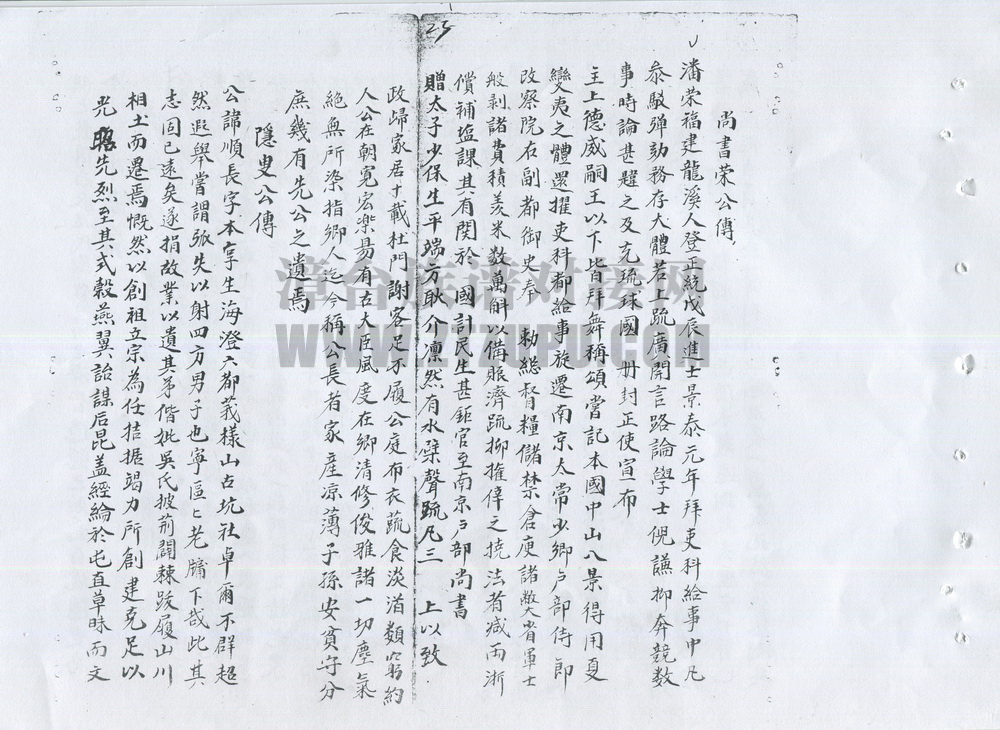 25
尚書荣公傳
潘荣福建龍溪人登正統戊辰進士景泰元年拜吏科給事中凡
叅駁彈劾務存大體若上疏廣開言路論學士倪謙抑奔競数
事時論甚韙之及充琉球國册封正使宣布
主上德威嗣王以下皆拜舞稱頌嘗記本國中山八景得用夏
變夷之體還擢吏科都給事旋遷南京太常少卿户部侍郎
改察院右副都御史奉 勅総督糧儲禁倉庾諸弊省軍士
般剥諸費積羡米数萬斛以備賑濟疏抑權倖之撓法者减两浙
償補塩課其有関於 國計民生甚鉅官至南京户部尚書
贈太子少保生平端方耿介凛然有水檗聲疏凡三 上以致
政歸家居十載杜門謝客足不履公庭布衣蔬食淡泊類窮約
人公在朝寛宏楽易有古大臣風度在鄉清修俊雅諸一切塵氣
絶無所染指鄉人迄今稱公長者家產凉薄子孫安貧守分
庶幾有先公之遺焉
隱叟公傳
公諱順長字本寧生海澄六都莪樣山古坑社卓爾不群超
然遐舉嘗謂弧矢以射四方男子也寧區々老牖下哉此其
志固已遠矣遂捐故業以遺其弟偕妣吳氏披荊闢棘跋履山川
相土而遷焉慨然以創祖立宗為任拮据竭力所創建克足以
光昭先烈至其式穀燕翼詒謀后昆盖經綸於屯直草昧而文
漳台族谱对接网